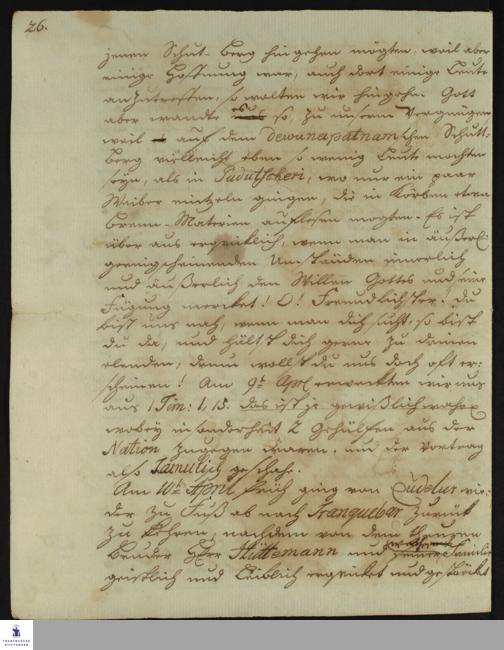 26.
jenen Schutt-Berg hingehen mögten, weil aber
einige Hoffnung war, auch dort einige Leute
anzutreffen, so wolten wir hingehen. Gott
aber wandte es so, zu unserm Vergnügen
weil auf dem Dewanapatnamschen Schutt-
berg vielleicht eben so wenig Leute mochten
seyn, als in Pudutscheri, wo nur ein paar
Weiber einzeln gingen, die in Körben etwa
Brenn-Materien auflesen mogten. Es ist
über aus erquicklich, wenn man in äußerl.
geringscheinenden Umständen innerlich
und äußerlich den Willen Gottes und seine
Fügung mercket! O! Freundlichster! du
bist uns nah, wenn man dich sucht, so bist
du da, und hältst dich gerne zu denen
elenden, denn wollst du uns doch oft er-
scheinen! Am 9t. Apr. erweckten wir uns
aus 1 Tim: 1, 15. das ist je gewißlich wahr
wobey insonderheit 2 Gehülfen aus der
Nation zugegen waren, und der Vortrag
also Tamulisch geschahe.
Am 10t. April früh ging von Cudelur wie-
der zu Fuß ab nach Tranquebar zurück
zu kehren, nachdem von dem theuren
Bruder Herr Hüttemann und werthen Familie
geistlich und leiblich erquicket und gestärcket
FRANCKESCHE
STIFTUNGEN